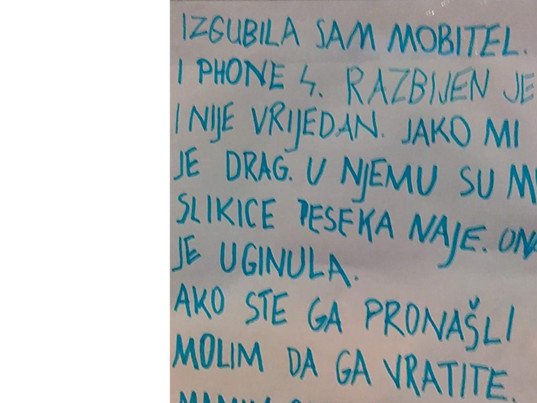 IZGUBILA SAM MOBITEL.
I PHONE 4. RAZBIJEN JE
I NIJE VRIJEDAN. JAKO MI
JE DRAG. U NJEMU SU M
SLIKICE PESEKA NAJE. ONA
JE UGINULA.
AKO STE GA PRONAŠLI
MOLIM DA GA VRATITE.